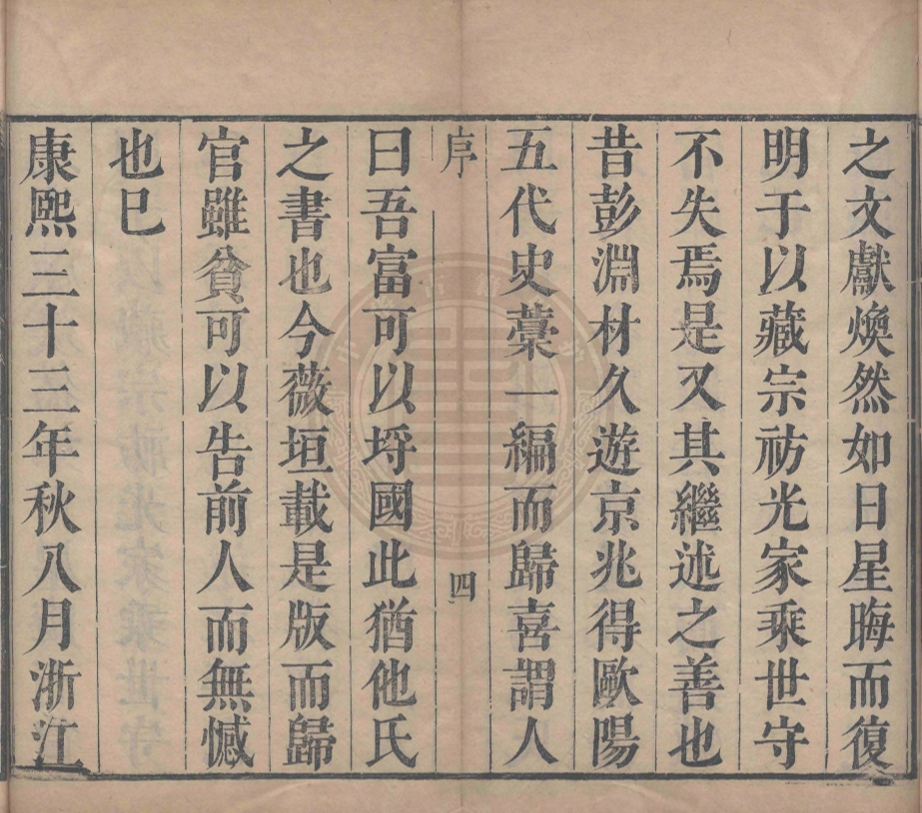 之文獻煥然如日星晦而復
明于以藏宗祊光家乘世守
不失焉是又其繼述之善也
昔彭淵材久遊京兆得歐陽
五代史藁一編而歸喜謂人
序 四
曰吾富可以埒國此猶他氏
之書也今薇垣載是版而歸
官雖貧可以告前人而無憾
也已
康熙三十三年秋八月浙江